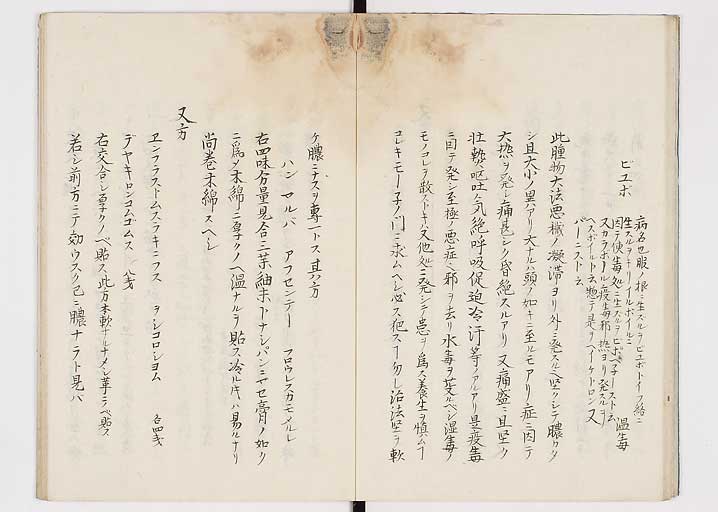 ビユホ
病名也股ノ根ニ生スルヲビユボトイフ給ニ
生スルヲ
因テ使毒処ニ生スルヲ
スカラボール疫毒邪熱ヨリ発スルヲ
ヘスボイルト云惣テ是ヲヘイケトロン又
バーニスト云
温毒
此腫物大法悪機ノ凝滞ヨリ外ニ発スルヘ堅クシテ膿ケタ
シ且大小ノ異アリ大ナルハ頭ノ如キニ至ルモアリ症ニ因テ
大热ヲ発シ痛甚シク昏絶スルアリ又痛盛ニ且堅ク
壮熱呕吐久気絶呼吸促迫冷汗等ノアルアリ是疫毒
ニ因テ発シ至極ノ悪症ヘ邪ヲ去リ水毒ヲ
ヘシ湿毒ノ
モノコレヲ散ストキハ又他処ニ発シテ患ヲ為ス養生ヲ慎ムヿ
コレキモー子ノ門ニ求ムヘシ必ス犯スヿ勿レ治法堅ヲ軟
ケ膿ニナスヲ専一トス其方
ハン マルハ アフセンテー フロウレスカモメルレ
右四味分量見合三葉細末トナシパンニヤセ膏ノ如ク
ニ為メ木綿ニ厚クノヘ温ナルヲ貼ス冷ル片ハ易ルナリ
尚巻木綿スヘシ
又方
ヱンフラストムスラキニフス ヲシコロシヨム 各四戔
デヤキロンコムゴムス 八戔
右交合シ厚クノベ貼ス此方木軟ナルナメシ革ニノベ貼ス
若シ前方ニテ効ウスク已ニ膿ナラト見ハ